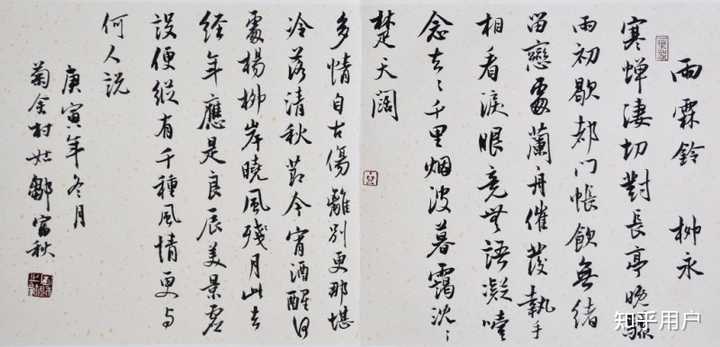 雨霖鈴 柳永
寒蝉淒切對長亭晚驟
雨初歇都門帳飲無緒
留戀處蘭舟催發執手
相看淚眼竟無語凝噎
念去々千里烟波暮靄沈々
楚天闊
多情自古傷離別更那堪
冷落清秋節今宵酒醒何
處楊柳岸曉風殘月此去
經年應是良辰美景虛
設便縱有千種風情更與
何人說
庚寅年冬月
菊舍村姑鄒富秋
知乎用户